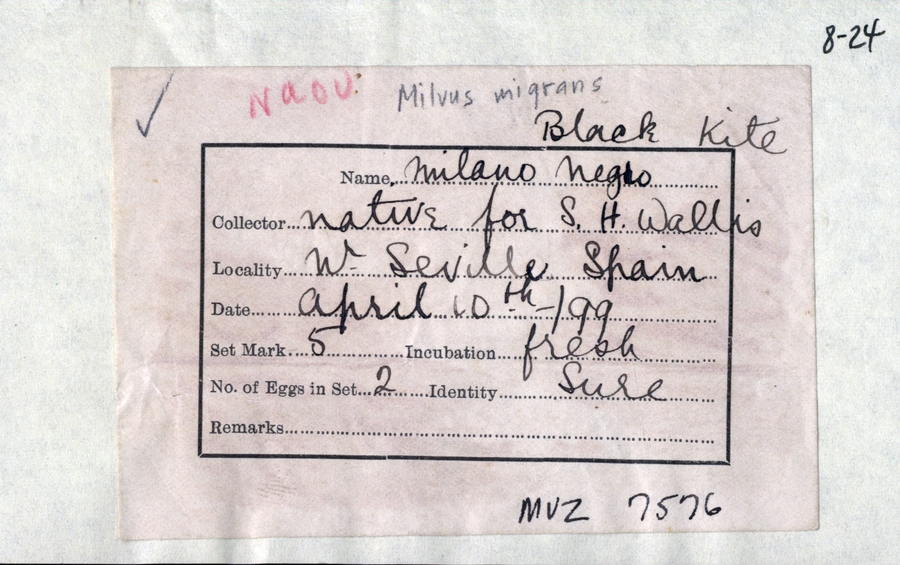 8-24
Naou Milvus migrans
Black Kite
Name. Milano negro
Collector. native for S. H. Wallis
Locality. Nr Seville Spain
Date. April 10th-/99
Set Mark. 5 Incubation fresh
No. of Eggs in Set. 2 Identity Sure
Remarks.
MVZ 7576